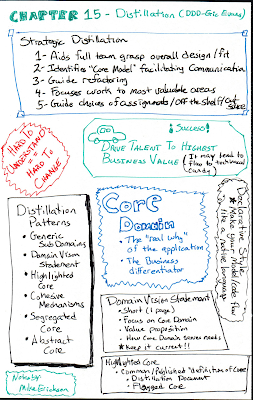 CHAPTER 15 - Distillation (DDD-Eric Evans)
Strategic Distillation
1- Aids full team grasp overall design/fit
2- Identifies "Core Model" facilitating Communication
3- Guide refactoring
4- Focuses work to most valuable areas
5- Guide choices of assignments/off the shelf/out source
HARD TO
UNDERSTAND
=
HARD TO
CHANGE
Success!
DRIVE TALENT TO HIGHEST
BUSINESS VALUE
It may tend to
flow to technical
candy
Distillation
Patterns
• Generic
Sub Domains
• Domain Vision
Statement
• Highlighted
Core
• Cohesive
Mechanisms
• Segregated
Core
• Abstract
Core
Core
Domain
• The "real why"
of the application
• The Business
differentiator
Declarative Style
★ Make your Model/code flow
like a native language
Domain Vision Statement
• Short (1 page)
• Focus on Core Domain
• Value proposition
• How Core Domain serves needs
★ Keep it current!!
Highlighted Core
• Common/Published "definition of Core"
• Distillation Document
• Flagged Core
Notes by
Mike Erickson